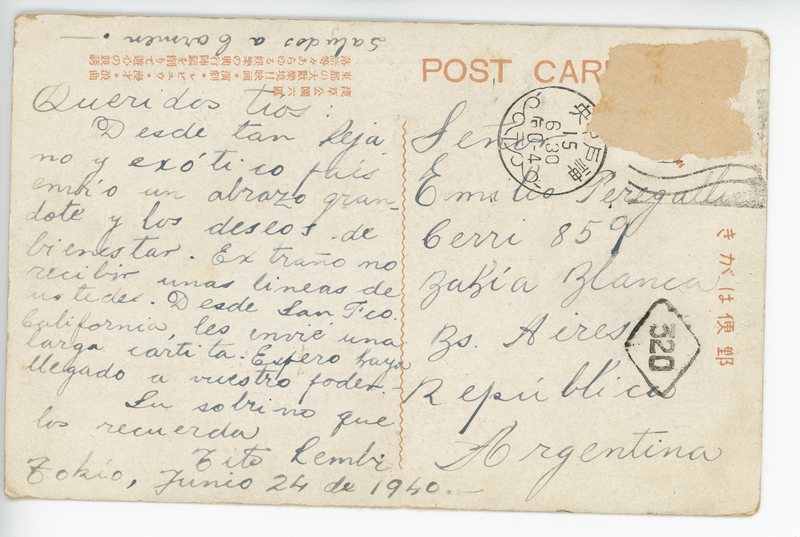 Saludos a Carmen.
POST CAR
きがは便郵
神戸中央
15
6.30
320
Queridos tios:
Desde tan leja
no y exótico país
envío un abrazo gran-
dote y los deseos de
bienestar. Extraño no
recibir unas lineas de
ustedes. Desde San Fco.
California, les envié una
larga cartita. Espero haya
llegado a vuestro poder.
Su sobrino que
los recuerda
Tito Lembi
Tokio, Junio 24 de 1940.-
Señor
Emilio Perigalli
Cerri 859
Bahía Blanca
Bs. Aires
República
Argentina